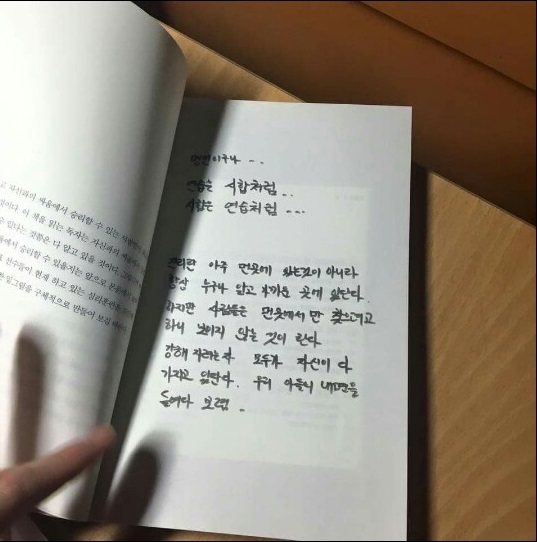 고 자신과의 싸움에서 승리할 수 있는
것이다. 이 책을 읽는 독자는 자신과의 싸움에서
수 있다는 것쯤은 다 알고 있을 것이다.
에서 승리할 수 있을지는 앞으로
선수들이 현재 하고 있는 심리훈련
밑그림을 구체적으로 만들어 보길
명언이구나 ...
연습은 시합처럼...
시합은 연습처럼...
진리란 아주 먼곳에 있는것이 아니라
항상 누구나 알고 가까운 곳에 있단다.
하지만 사람들은 먼곳에서만 찾으려고
하니 보이지 않는 것이 란다
강해 지려는자 모두가 자신이 다
가지고 있단다. 우리 아들의 내면을
들여다 보렴..